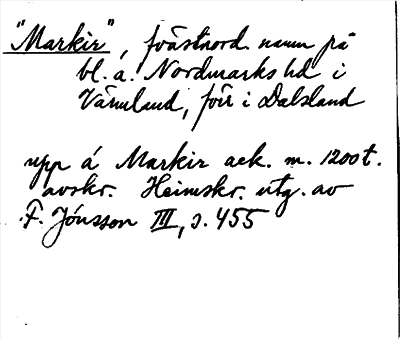 "Markir", fvästnord. namn på
bl. a. Nordmarks hd i
Värmland, förr i Dalsland
upp á Markir ack. m. 1200 t.
avskr. Heimskr. utg. av
F. Jónsson III, s. 455